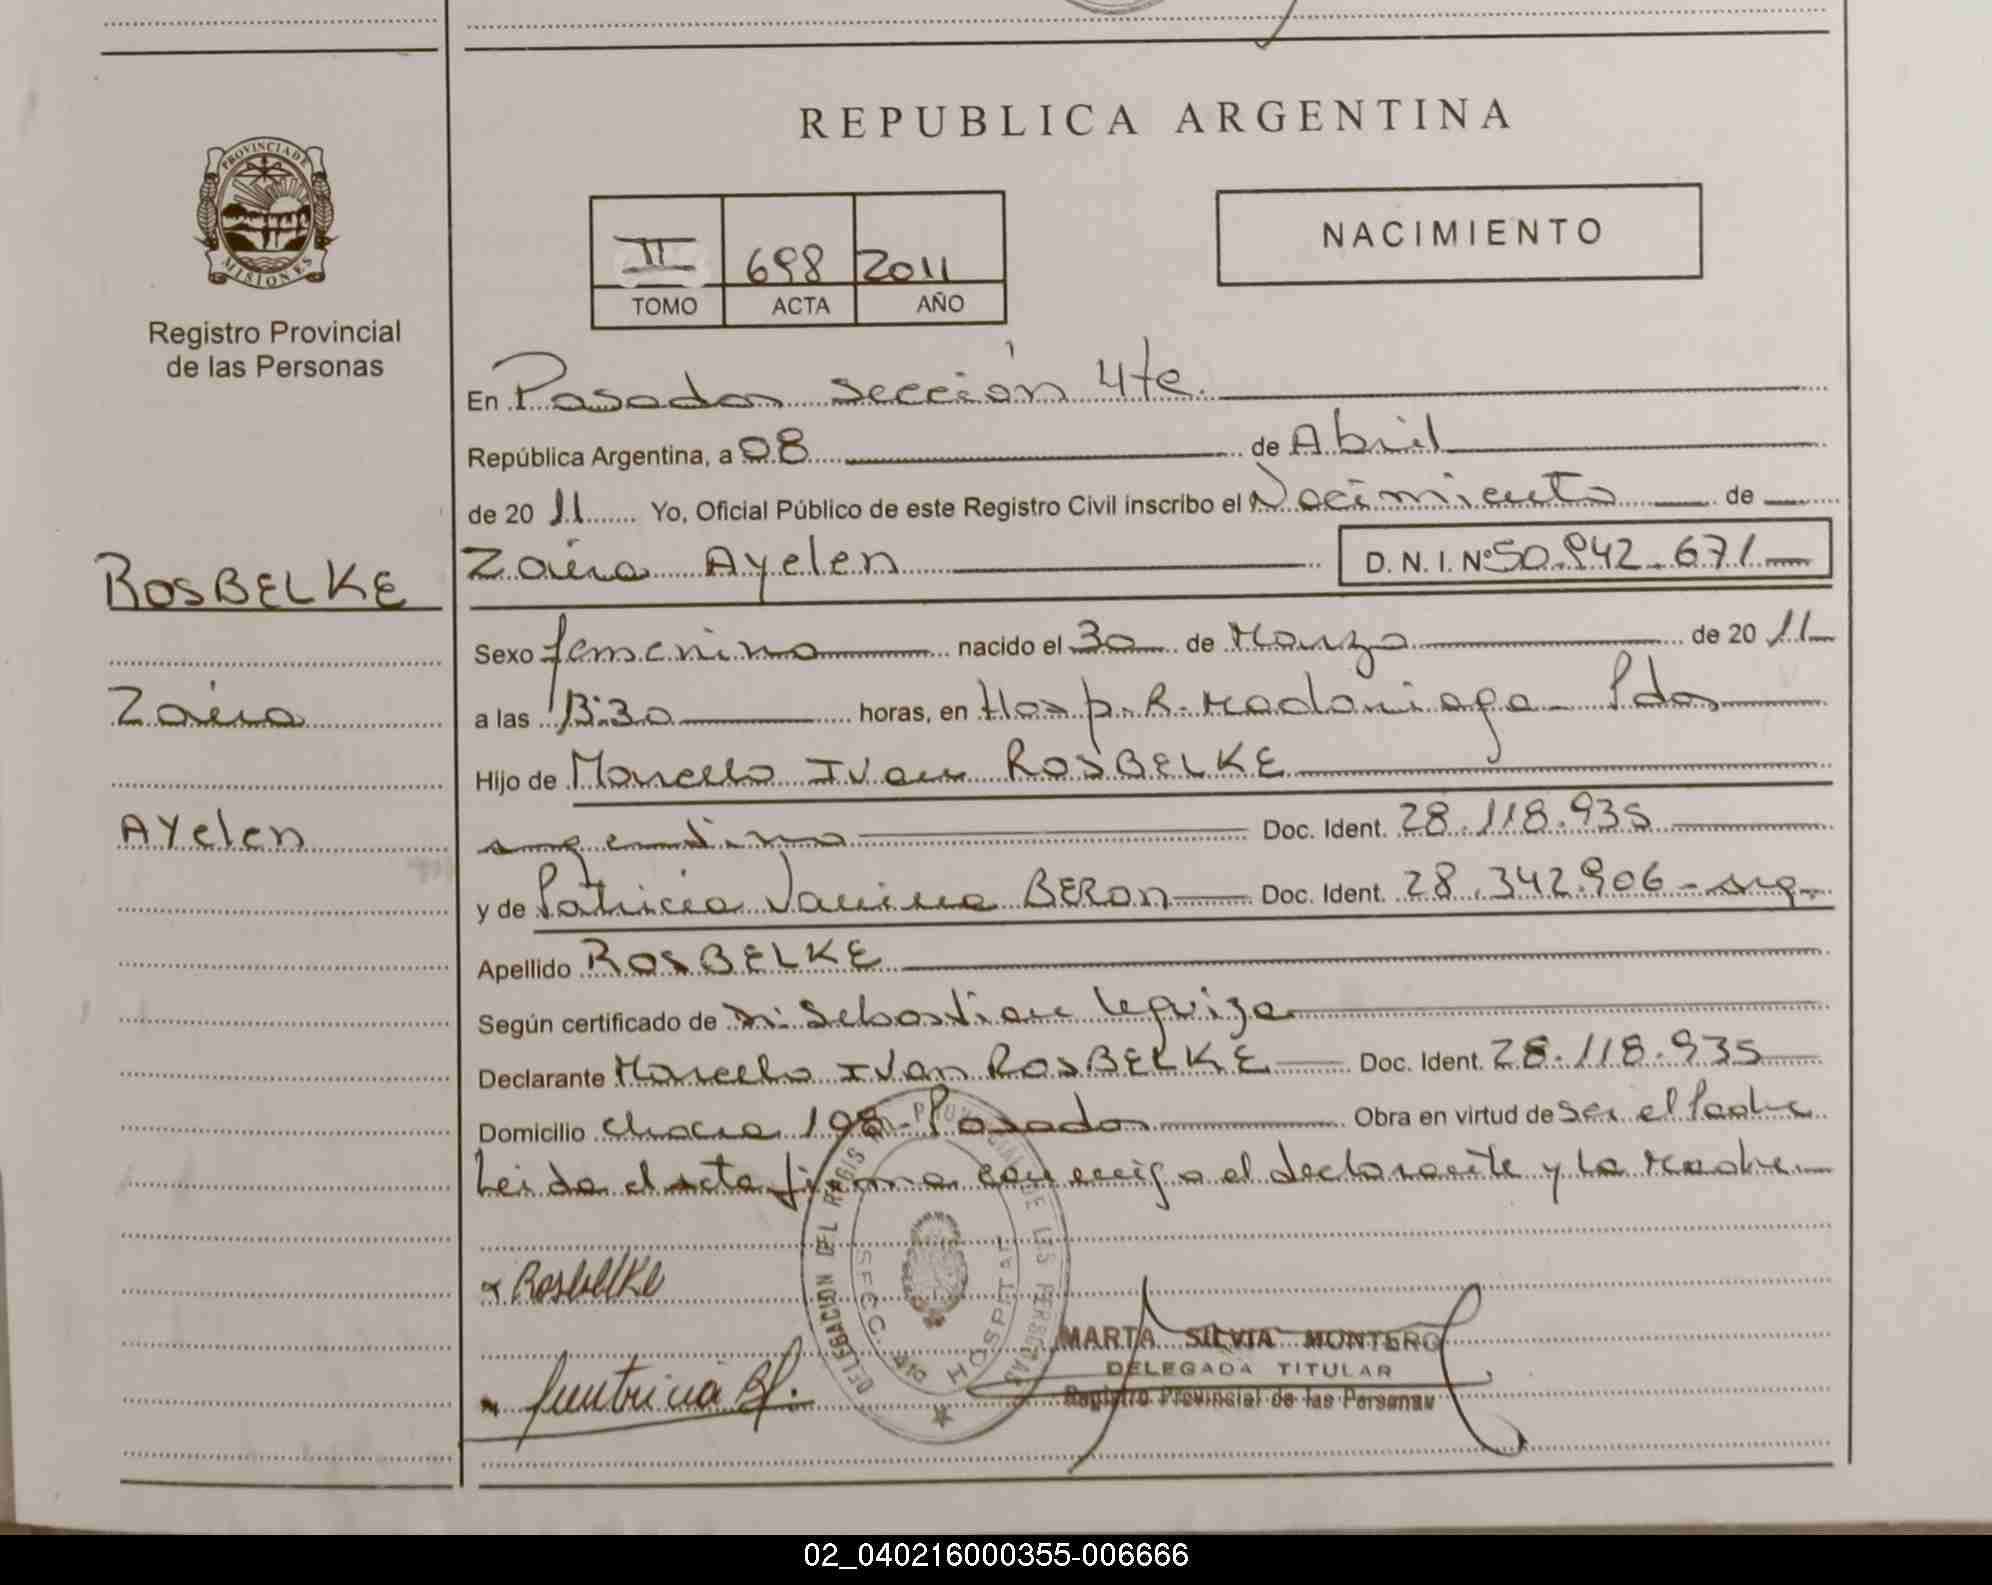 REPUBLICA ARGENTINA
PROVINCIA DE MISIONES
Registro Provincial
de las Personas
II 698 2011
TOMO ACTA AÑO
NACIMIENTO
En Posadas sección 4te.
República Argentina, a 08 de Abril
de 20 11 Yo, Oficial Público de este Registro Civil inscribo el Nacimiento de
ROSBELKE
Zaira
Ayelen
Zaira Ayelen D. N. I. Nº 50.942.671
Sexo femenino nacido el 30 de Marzo de 20 11
a las 13:30 horas, en Hosp. R. Madariaga - Pdas
Hijo de Marcelo Ivan ROSBELKE
argentino Doc. Ident. 28.118.935
y de Patricia Janina BERON Doc. Ident. 28.342.906 - arg.
Apellido ROSBELKE
Según certificado de Dr. Sebastian Leguiza
Declarante Marcelo Ivan ROSBELKE Doc. Ident. 28.118.935
Domicilio chacra 198 - Posadas Obra en virtud de ser el Padre
Leida el acta firma conmigo el declarante y la madre
Rosbelke
DELEGACION DEL REGISTRO PROVINCIAL DE LAS PERSONAS
SECC. 4ta HOSPITAL
MARTA SILVIA MONTERO
DELEGADA TITULAR
Registro Provincial de las Personas
02_040216000355-006666